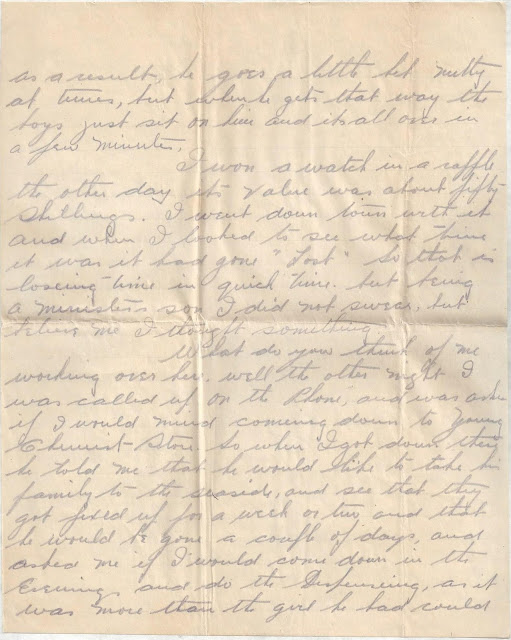 as a result, he goes a little bit nutty
at times, but when he gets that way the
boys just sit on him and its all over in
a few minutes.
I won a watch in a raffle
the other day its value was about fifty
shillings. I went down town with it
and when I looked to see what time
it was it had gone "Lost" so that is
loseing time in quick time. but being
a ministers son I did not swear, but
believe me I thought something
What do you think of me
working over here. well the other night I
was called up on the Phone, and was asked
if I would mind comeing down to Young
Chemist Store. So when I got down there
he told me that he would like to take his
family to the seaside, and see that they
got fixed up for a week or two and that
he would be gone a couple of days, and
asked me if I would come down in the
Evenings and do the Dispenseing, as it
was more than the girl he had could